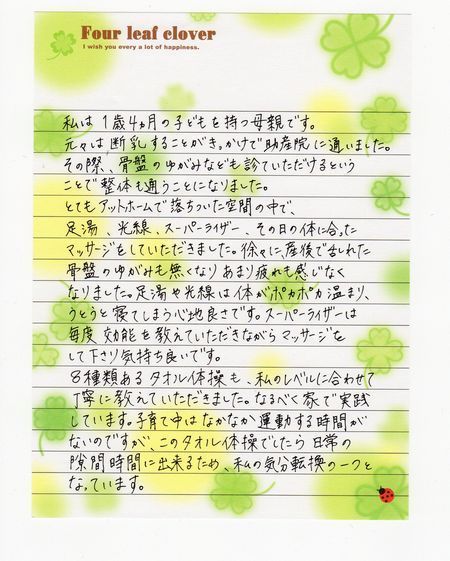 Four leaf clover
I wish you every a lot of happiness.
私は1歳4ヵ月の子どもを持つ母親です。
元々は、断乳することがきっかけで助産院に通いました。
その際、骨盤のゆがみなども診ていただけるという
ことで整体も通うことになりました。
とてもアットホームで落ちついた空間の中で、
足湯、光線、スーパーライザー、その日の体に合った
マッサージをしていただきました。徐々に、産後で乱れた
骨盤のゆがみも無くなりあまり疲れも感じなく
なりました。足湯や光線は体がポカポカ温まり、
うとうと寝てしまう心地良さです。スーパーライザーは
毎度効能を教えていただきながらマッサージを
して下さり気持ち良いです。
8種類あるタオル体操も、私のレベルに合わせて
丁寧に教えていただきました。なるべく家で実践
しています。子育て中はなかなか運動する時間が
ないのですが、このタオル体操でしたら日常の
隙間時間に出来るため、私の気分転換の一つと
なっています。